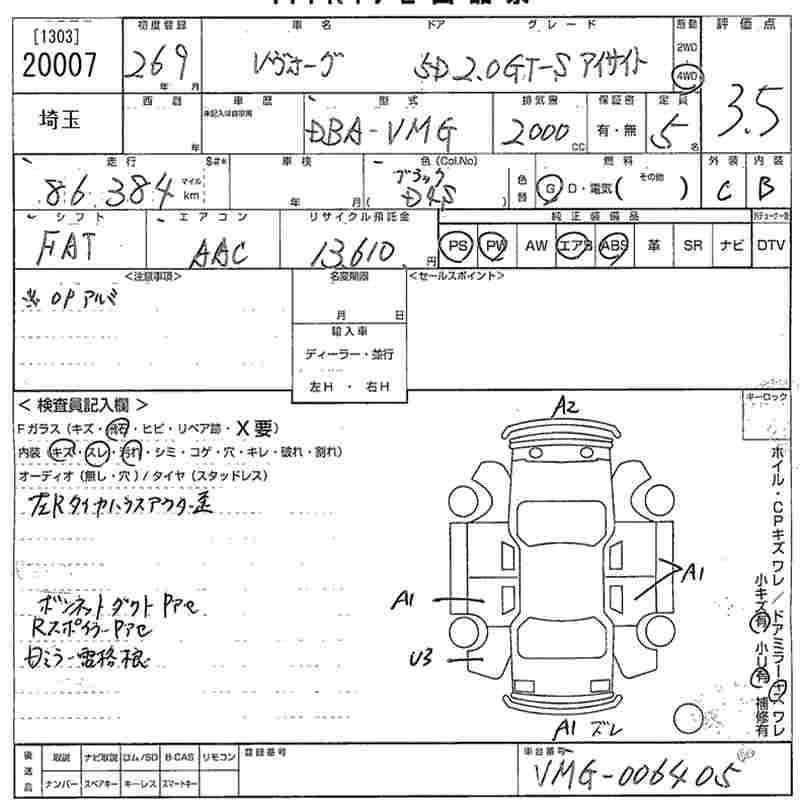 [1303]
20007
初度登録
26 9
年 月
車名
レヴォーグ
ドア
グレード
5D 2.0GT-S アイサイト
駆動
2WD
4WD
評価点
3.5
埼玉
西暦
年
車歴
未記入は自家用
型式
DBA-VMG
排気量
2000
CC
保証書
有・無
定員
5
名
走行
86,384
マイル
km
S#*
車検
年 月
色(Col.No)
ブラック
( D4S )
色替
燃料
G D・電気( その他 )
外装
C
内装
B
シフト
FAT
エアコン
AAC
リサイクル預託金
13,610
円
純正装備品
PS PW AW エアB ABS 革 SR ナビ DTV
<注意事項>
OPアルミ
名変期限
月 日
輸入車
ディーラー・並行
左H ・ 右H
<セールスポイント>
<検査員記入欄>
Fガラス(キズ・飛石・ヒビ・リペア跡・X要)
内装(キズ・スレ・汚れ・シミ・コゲ・穴・キレ・破れ・割れ)
オーディオ(無し・穴)/タイヤ(スタッドレス)
左Rタイヤハウスアウター歪
ボンネットダクトPアセ
RスポイラーPアセ
ミラー電格
キーロック
A2
A1
A1
U3
A1 ズレ
ホイル・CPキズワレ/ドアミラーキズワレ
小キズ有 小U有 補修有
後送品
取説 ナビ取説 ロム/SD B-CAS リモコン
ナンバー スペアキー キーレス スマートキー
登録番号
車台番号
VMG-006405